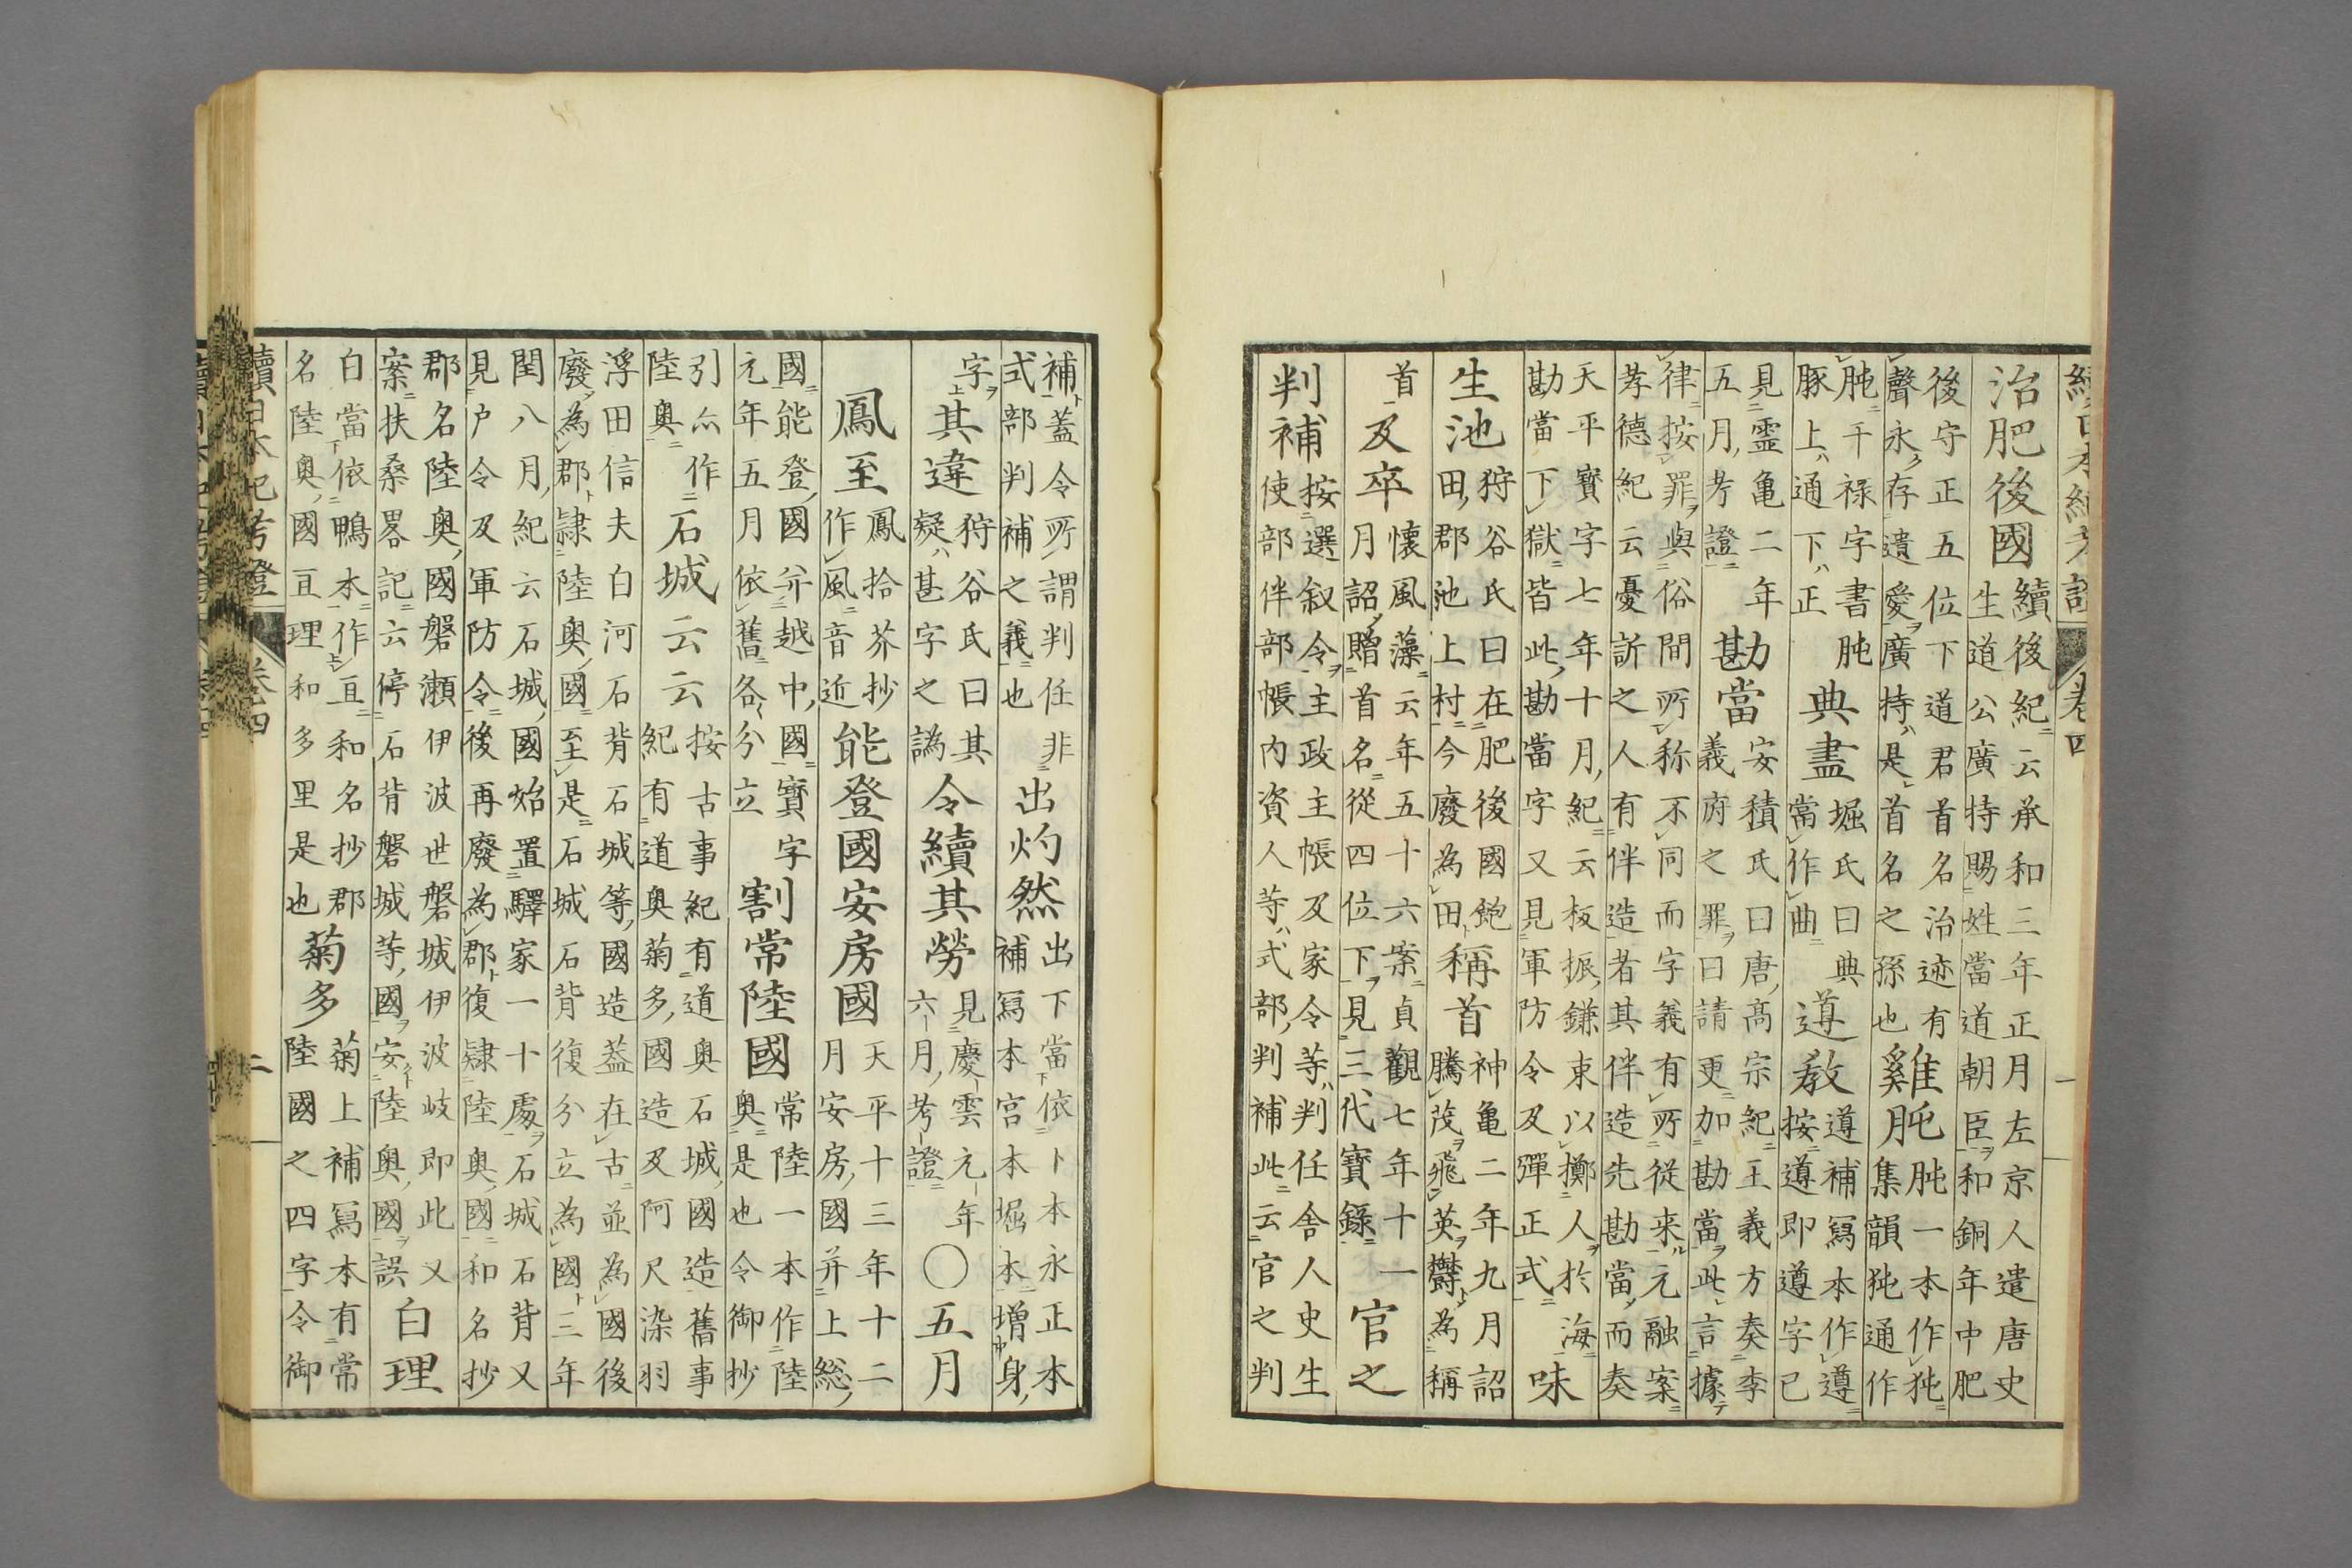 續日本紀考證 卷四 一
治肥後國
續後紀云承和三年正月左京人遣唐史
生道公廣持賜姓當道朝臣和銅年中肥
後守正五位下道君首名治迹有
聲永存遺愛廣持是首名之孫也
雞肫
肫一本作㹠
集韻㹠通作
肫干禄字書肫
豚上通下正
典盡
堀氏曰典
當作曲
遵教
遵補寫本作遵
按遵即遵字已
見霊亀二年
五月考證
勘當
安積氏曰唐高宗紀王義方奏李
義府之罪曰請更加勘當此言據
律按罪與俗間所称不同而字義有所從来元融案
孝德紀云憂訴之人有伴造者其伴造先勘當而奏
天平寳字七年十月紀云板振鎌束以擲人於海
勘當下獄皆此勘當字又見軍防令及彈正式
味
生池
狩谷氏曰在肥後國飽
田郡池上村今廢為田
稱首
神亀二年九月詔
騰茂飛英欝為稱
首
及卒
懷風藻云年五十六案貞觀七年十一
月詔贈首名從四位下見三代實錄
官之
判補
按選叙令主政主帳及家令等判任舎人史生
使部伴部帳内資人等式部判補此云官之判
補蓋令所謂判任非
式部判補之義也
出灼然
出下當依卜本永正本
補寫本宮本堀本増身
字
其違
狩谷氏曰其
疑甚字之譌
令續其勞
見慶雲元年
六月考證
〇五月
鳳至
鳳拾芥抄
作風音近
能登國安房國
天平十三年十二
月安房國并上総
國能登國并越中國寳字
元年五月依舊各分立
割常陸國
常陸一本作陸
奥是也令御抄
引亦作
陸奥
石城云云
按古事紀有道奥石城國造舊事
紀有道奥菊多國造及阿尺染羽
浮田信夫白河石背石城等國造蓋在古並為國後
廢為郡隷陸奥國至是石城石背復分立為國三年
閏八月紀云石城國始置驛家一十處石城石背又
見户令及軍防令後再廢為郡復隷陸奥國和名抄
郡名陸奥國磐瀬伊波世磐城伊波岐即此又
案扶桑畧記云停石背磐城等國安陸奥國誤
白理
白當依鴨本作亘和名抄郡
名陸奥國亘理和多里是也
菊多
菊上補寫本有常
陸國之四字令御
續日本紀考證 卷四 二